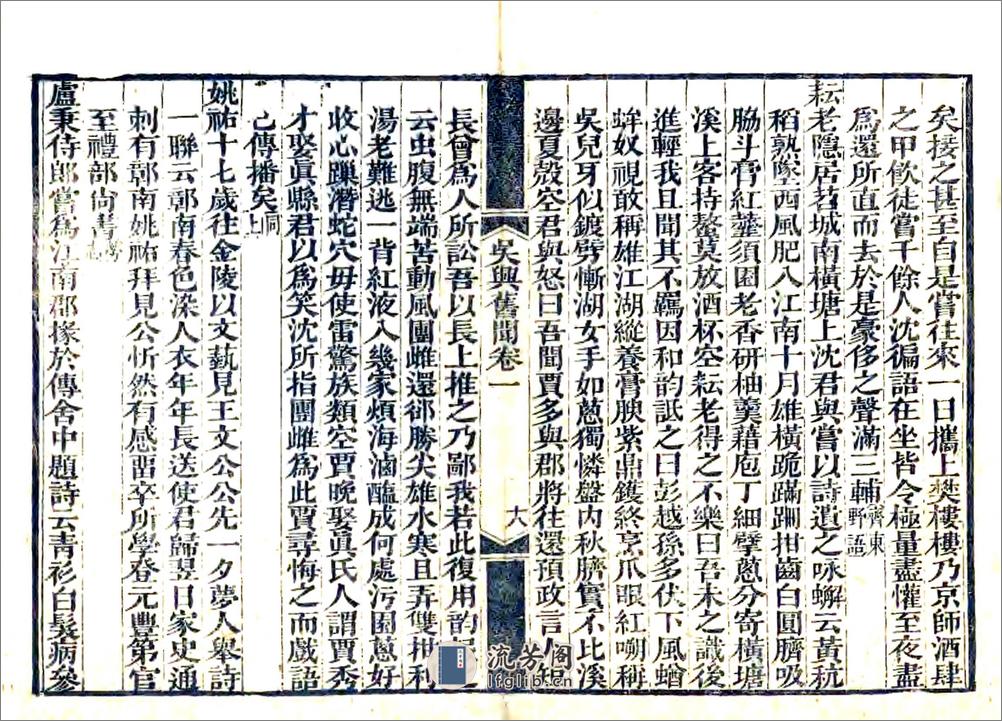 矣接之甚至自是嘗往來一日攜上樊樓樓乃京師酒肆
之甲飲徒嘗千餘人沈徧語在坐皆令極量盡懽至夜盡
為還所直而去於是豪侈之聲滿三輔齊東野語
耘老隱居苕城南橫塘上沈君與嘗以詩遺之咏蠏云黃秔
稻熟墜西風肥入江南十月雄橫跪蹣跚拑齒白圓臍吸
脇斗膏紅虀須園老香研柚羹藉庖丁細擘蔥分寄橫塘
溪上客持螯莫放酒杯空耘老得之不樂曰吾未之識後
進輕我且聞其不羈因和韵詆之曰彭越孫多伏下風蝤
蛑奴視敢稱雄江湖縱養膏腴紫鼎鑊終烹爪眼紅嘲稱
吳兒牙似鍍劈慚湖女手如蔥獨憐盤內秋臍實不比溪
邊夏殼空君與怒曰吾聞賈多與郡將往還預政言人短
吳興舊聞卷一
六
長曾為人所訟吾以長上推之乃鄙我若此復用韵
云虫腹無端苦動風團雌還郤勝尖雄水寒且弄雙拑利
湯老難逃一背紅液入幾家煩海滷醢成何處污園蔥好
收心躁潛蛇穴毋使雷驚族類空賈晚娶眞氏人謂賈秀
才娶眞縣君以為笑沈所指團雌為此賈尋悔之而戲語
已傳播矣同上
姚祐十七歲往金陵以文藝見王文公公先一夕夢人舉詩
一聯云郭南春色深人衣年年長送使君歸翌日家史通
刺有郭南姚祐拜見公忻然有感畱卒所學登元豐第官
至禮部尚書
盧秉侍郎嘗為江南郡掾於傳舍中題詩云靑衫白髮病參
流芳阁
lfglib.cn